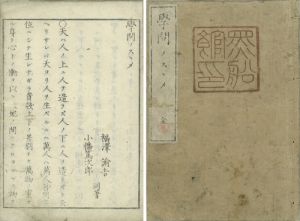 學問ノスヽメ 全
學問ノスヽメ
福澤諭吉
小幡篤次郎 同著
○天ハ人ノ上ニ人ヲ造ラズ人ノ下ニ人ヲ造ラズト
ヘリサレバ天ヨリ人ヲ生ズルニハ萬人ハ萬人皆
位ニシテ生レナガラ貴賤上下ノ差別ナク萬物ノ
タル身ト心トノ働ヲ以テ天地ノ間ニアルヨロヅノ物